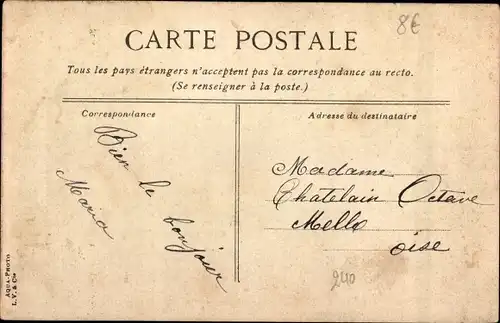 8€
CARTE POSTALE
Tous les pays étrangers n'acceptent pas la correspondance au recto.
(Se renseigner à la poste.)
Correspondance
Bien le bonjour
Maria
Adresse du destinataire
Madame
Chatelain Octave
Mello
oise
240
AQUA-PHOTO
L. V. & Cie